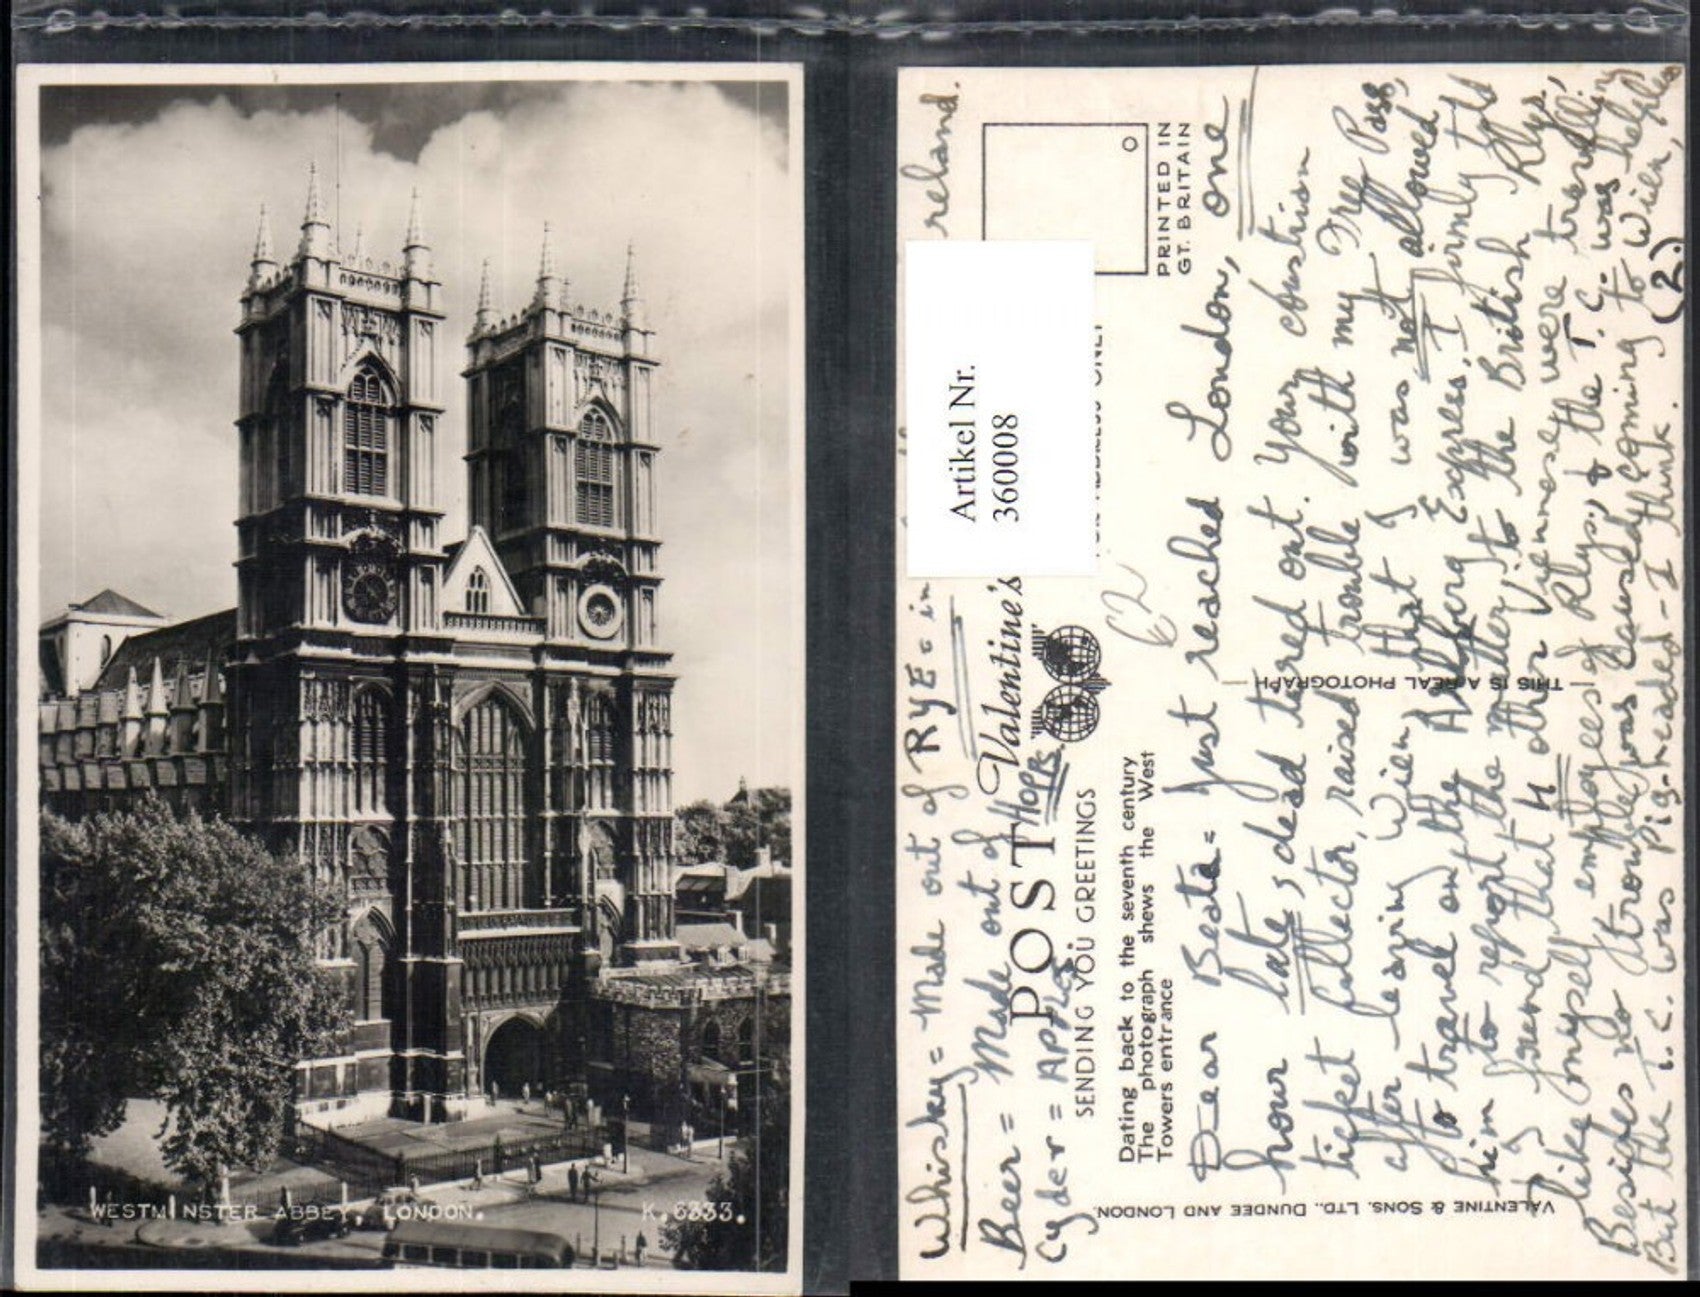 WESTMINSTER ABBEY, LONDON.
K.6333.
Artikel Nr.
360008
Whisky = Made out of RYE = in reland.
Beer = Made out of Hopps
Cyder = APPLES
POST
Valentine's
SENDING YOU GREETINGS
Dating back to the seventh century
The photograph shews the West
Towers entrance
PRINTED IN
GT. BRITAIN
62
THIS IS A REAL PHOTOGRAPH
VALENTINE & SONS, LTD., DUNDEE AND LONDON.
Dear Beata = Just reached London, one
hour late, & dead tired out. Your Austrian
ticket collector, raised trouble with my Free Pass,
after leaving Wien that I was not allowed
to travel on the Arlberg Express, I firmly told
him to report the matter to the British Rlys,
I found that 4 other Viennese were travelling
like myself employees of Rlys., & the T.C. was
Besides no strouble was caused coming to Wien,
But the T.C. was pig-headed - I think. (2.)